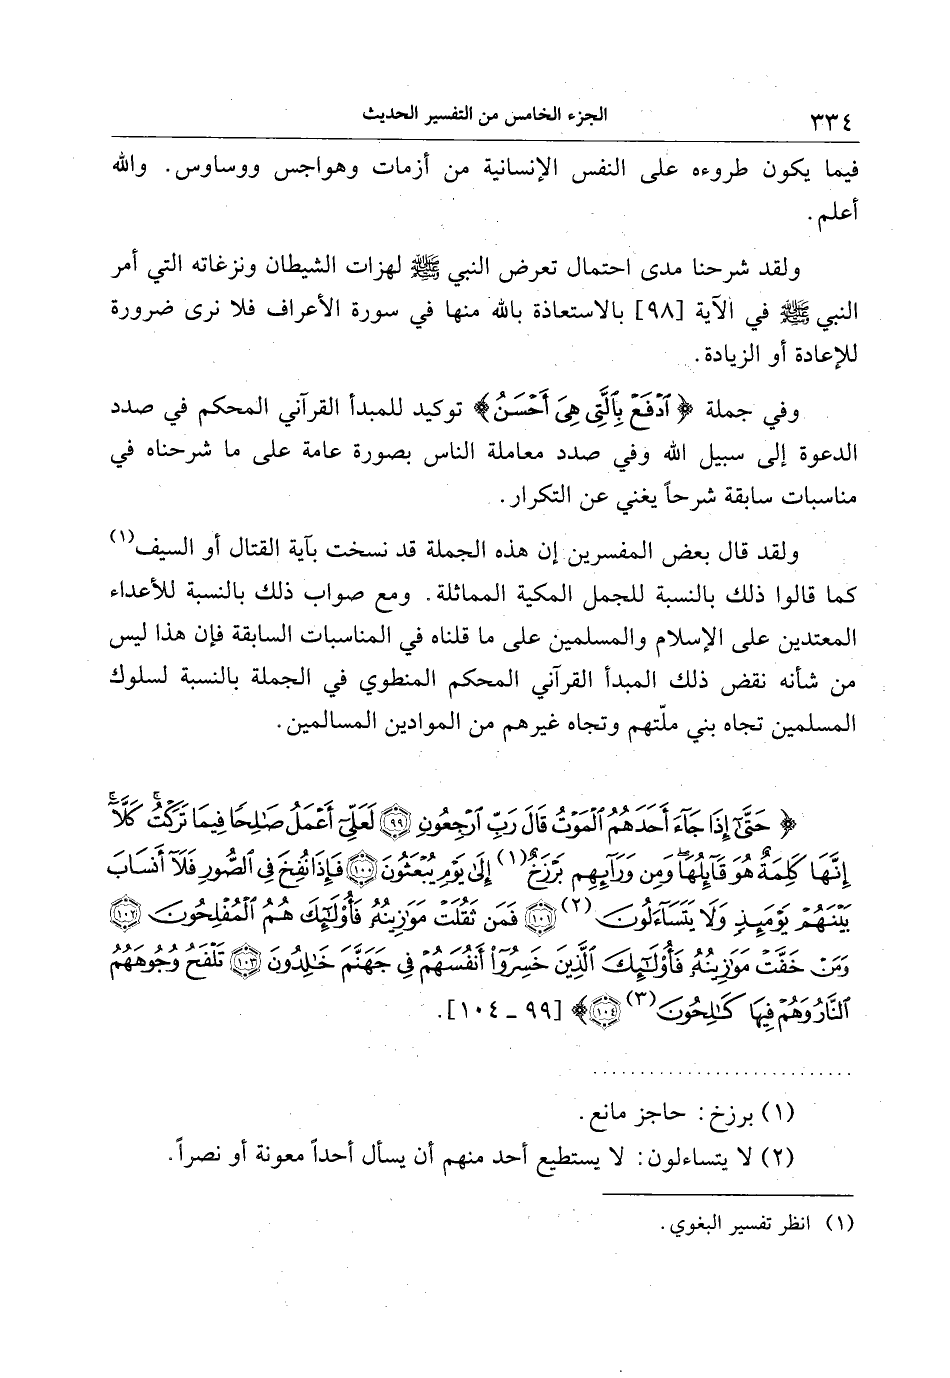 ٣٣٤ الجزء الخامس من التفسير الحديث
فيما يكون طروءه على النفس الإنسانية من أزمات وهواجس ووساوس. والله
أعلم.
ولقد شرحنا مدى احتمال تعرض النبي ﷺ لهزات الشيطان ونزغاته التي أمر
النبي ﷺ في الآية [٩٨] بالاستعاذة بالله منها في سورة الأعراف فلا نرى ضرورة
للإعادة أو الزيادة.
وفي جملة ﴿ ٱدۡفَعۡ بِٱلَّتِي هِيَ أَحۡسَنُ ﴾ توكيد للمبدأ القرآني المحكم في صدد
الدعوة إلى سبيل الله وفي صدد معاملة الناس بصورة عامة على ما شرحناه في
مناسبات سابقة شرحاً يغني عن التكرار.
ولقد قال بعض المفسرين إن هذه الجملة قد نسخت بآية القتال أو السيف(١)
كما قالوا ذلك بالنسبة للجمل المكية المماثلة. ومع صواب ذلك بالنسبة للأعداء
المعتدين على الإسلام والمسلمين على ما قلناه في المناسبات السابقة فإن هذا ليس
من شأنه نقض ذلك المبدأ القرآني المحكم المنطوي في الجملة بالنسبة لسلوك
المسلمين تجاه بني ملّتهم وتجاه غيرهم من الموادين المسالمين.
﴿ حَتَّىٰٓ إِذَا جَآءَ أَحَدَهُمُ ٱلۡمَوۡتُ قَالَ رَبِّ ٱرۡجِعُونِ ٩٩ لَعَلِّيٓ أَعۡمَلُ صَٰلِحٗا فِيمَا تَرَكۡتُۚ كَلَّآۚ
إِنَّهَا كَلِمَةٌ هُوَ قَآئِلُهَاۖ وَمِن وَرَآئِهِم بَرۡزَخٌ(١) إِلَىٰ يَوۡمِ يُبۡعَثُونَ ١٠٠ فَإِذَا نُفِخَ فِي ٱلصُّورِ فَلَآ أَنسَابَ
بَيۡنَهُمۡ يَوۡمَئِذٖ وَلَا يَتَسَآءَلُونَ(٢) ١٠١ فَمَن ثَقُلَتۡ مَوَٰزِينُهُۥ فَأُوْلَٰٓئِكَ هُمُ ٱلۡمُفۡلِحُونَ ١٠٢
وَمَنۡ خَفَّتۡ مَوَٰزِينُهُۥ فَأُوْلَٰٓئِكَ ٱلَّذِينَ خَسِرُوٓاْ أَنفُسَهُمۡ فِي جَهَنَّمَ خَٰلِدُونَ ١٠٣ تَلۡفَحُ وُجُوهَهُمُ
ٱلنَّارُ وَهُمۡ فِيهَا كَٰلِحُونَ(٣) ١٠٤ ﴾ [٩٩ - ١٠٤].
(١) برزخ: حاجز مانع.
(٢) لا يتساءلون: لا يستطيع أحد منهم أن يسأل أحداً معونة أو نصراً.
(١) انظر تفسير البغوي.